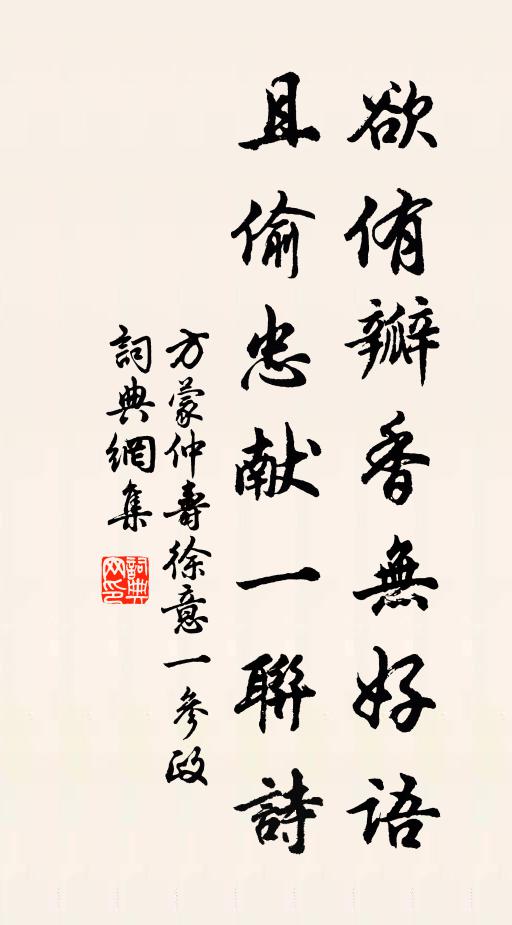 欲侑瓣香無好语
且偷忠献一聯詩
方蒙仲壽徐意一參政
詞典網集
詞典网印